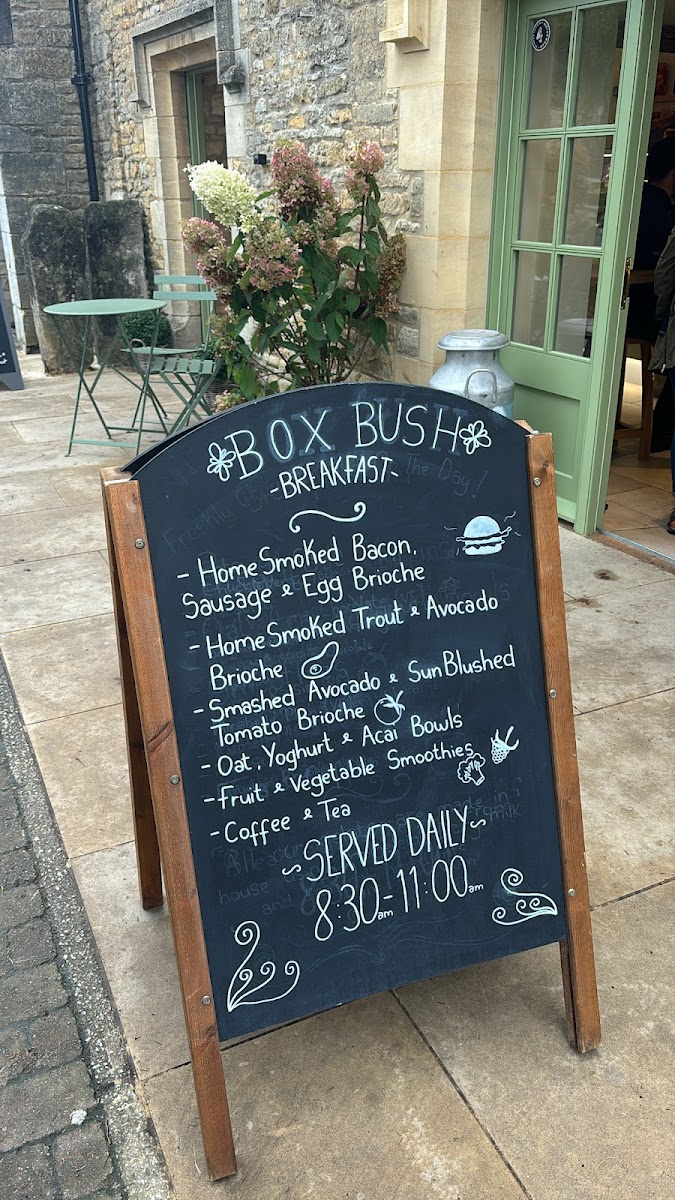 BOX BUSH
-BREAKFAST-
- Home Smoked Bacon,
Sausage & Egg Brioche
- Home Smoked Trout & Avocado
Brioche
- Smashed Avocado & Sun Blushed
Tomato Brioche
- Oat, Yoghurt & Acai Bowls
- Fruit & Vegetable Smoothies
- Coffee & Tea
~SERVED DAILY~
8:30am-11:00am